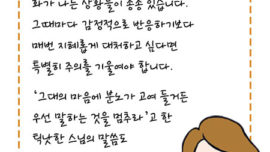 화가 나는 상황들이 종종 있습니다.
그때마다 감정적으로 반응하기보다
매번 지혜롭게 대처하고 싶다면
특별히 주의를 기울여야 합니다.
'그대의 마음에 분노가 고여 들거든
우선 말하는 것을 멈추라'고 한
틱낫한 스님의 말씀도